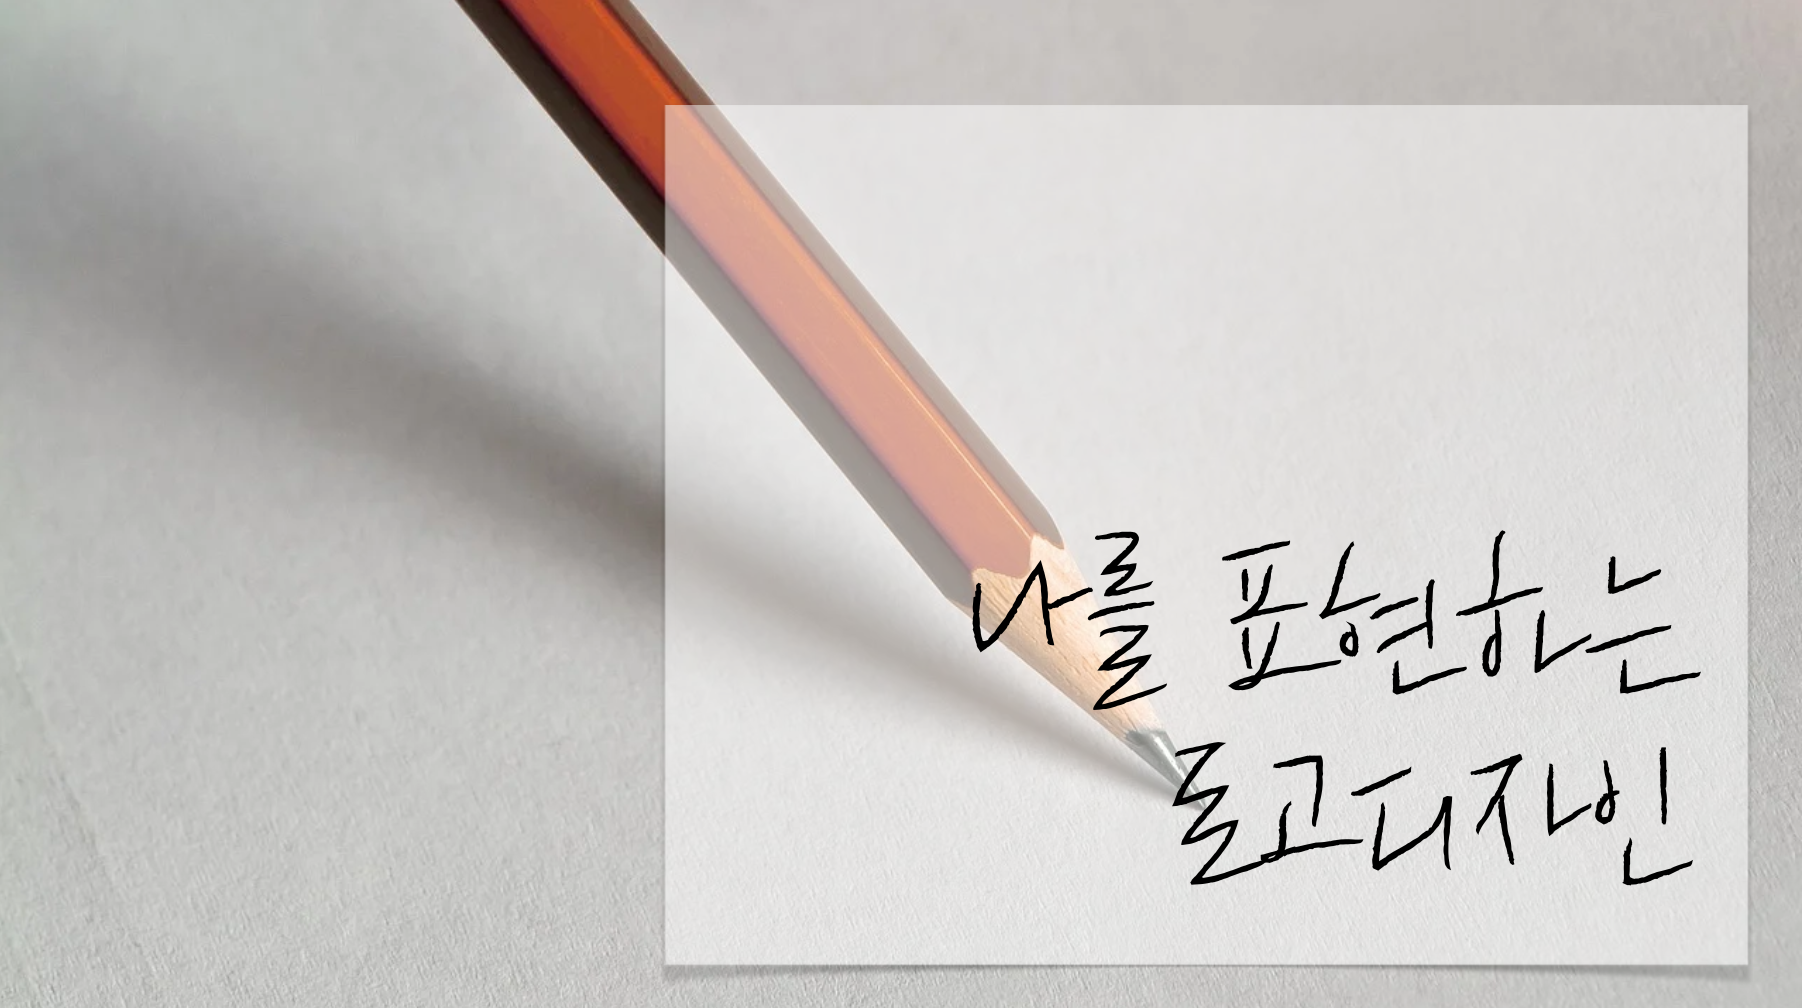 나를 표현하는
로고디자인